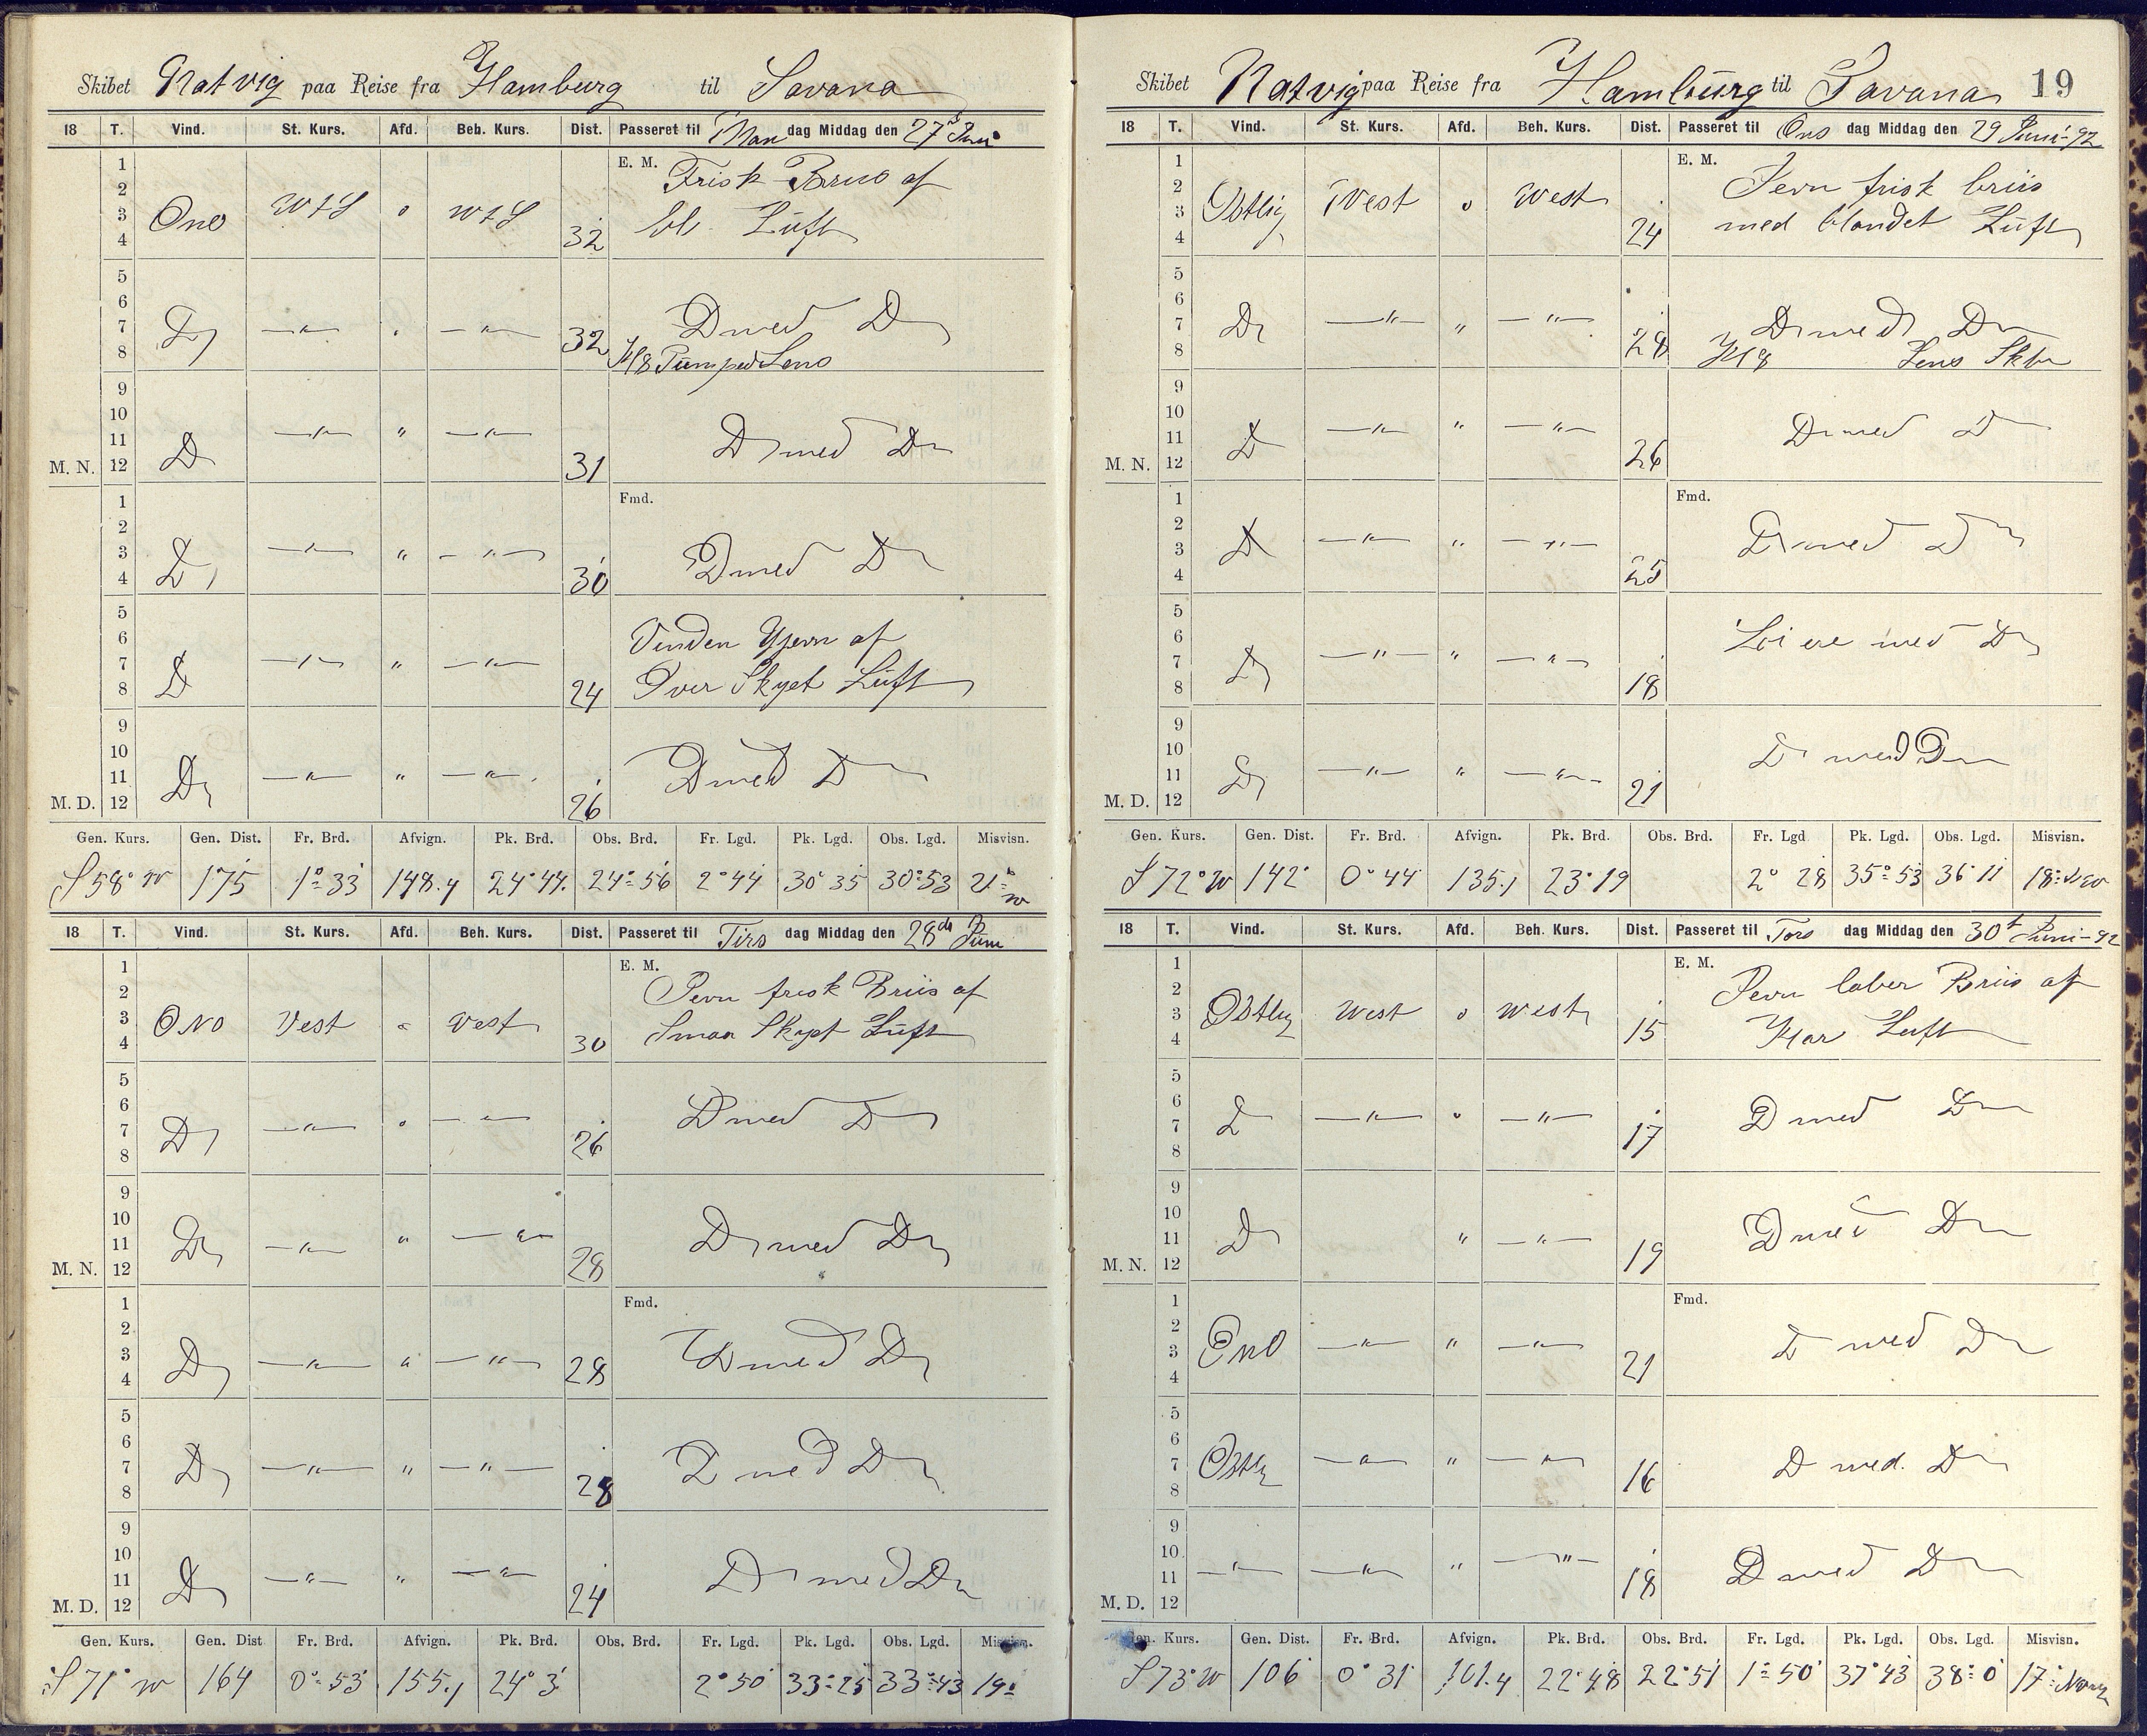 Skibet Natvig paa Reise fra Hamburg til Savana
18 T. Vind. St. Kurs. Afd. Beh. Kurs. Dist. Passeret til Man dag Middag den 27de Juni
1 E. M. Frisk Briis af
2
3 Ono W t S o W t S
4 32 bl. Luft
5
6
7 Do —"— " —"— Do med Do
8 32 Kl 8 Pumped Lens
9
10
11 Do —"— " —"— Do med Do
M. N. 12 31
1 Fmd.
2
3 Do —"— " —"— Do med Do
4 30
5
6 Vinden Ujevn af
7 Do —"— " —"—
8 24 Over Skyet Luft
9
10
11 Do —"— " —"— Do med Do
M. D. 12 26
Gen. Kurs. Gen. Dist. Fr. Brd. Afvign. Pk. Brd. Obs. Brd. Fr. Lgd. Pk. Lgd. Obs. Lgd. Misvisn.
S 58° W 175 1° 33' 148.4 24° 44' 24° 56' 2° 44' 30° 35' 30° 53' 21° W
18 T. Vind. St. Kurs. Afd. Beh. Kurs. Dist. Passeret til Tirs dag Middag den 28de Juni
1 E. M.
2 Jevn frisk Briis af
3 ONO Vest o Vest Smaa Skyet Luft
4 30
5
6
7 Do —"— " —"— Do med Do
8 26
9
10
11 Do —"— " —"— Do med Do
M. N. 12 28
1 Fmd.
2
3 Do —"— " —"— Do med Do
4 28
5
6
7 Do —"— " —"— Do med Do
8 28
9
10
11 Do —"— " —"— Do med Do
M. D. 12 24
Gen. Kurs. Gen. Dist Fr. Brd. Afvign. Pk. Brd. Obs. Brd. Fr. Lgd. Pk. Lgd. Obs. Lgd. Misvisn.
S 71° W 164 0° 53' 155.1 24° 3' 2° 50' 33° 25' 33° 43' 19°
Skibet Natvig paa Reise fra Hamburg til Savana 19
18 T. Vind. St. Kurs. Afd. Beh. Kurs. Dist. Passeret til Ons dag Middag den 29 Juni - 92
1 E. M.
2 Jevn frisk briis
3 Østlig Vest o West med blandet Luft
4 24
5
6
7 Do —"— " —"— Do med Do
8 28 Kl 8 Lens Skb
9
10
11 Do —"— " —"— Do med Do
M. N. 12 26
1 Fmd.
2
3 Do —"— " —"— Do med Do
4 25
5
6 Løiere med Do
7 Do —"— " —"—
8 18
9
10 Do med Do
11 Do —"— " —"—
M. D. 12 21
Gen. Kurs. Gen. Dist. Fr. Brd. Afvign. Pk. Brd. Obs. Brd. Fr. Lgd Pk. Lgd. Obs. Lgd. Misvisn.
S 72° W 142 0° 44' 135.1 23° 19' 2° 28' 35° 53' 36° 11' 18°
18 T. Vind. St. Kurs. Afd. Beh. Kurs. Dist. Passeret til Tors dag Middag den 30t Juni - 92
1 E. M.
2 Jevn laber Briis af
3 Østlig West o West Klar Luft
4 15
5
6
7 Do —"— " —"— Do med Do
8 17
9
10
11 Do " —"— Do med Do
M. N. 12 19
1 Fmd.
2
3 Ono —"— " —"— Do med Do
4 21
5
6
7 Østlig —"— " —"— Do med. Do
8 16
9
10
11 —"— —"— " —"— Do med Do
M. D. 12 18
Gen. Kurs. Gen. Dist. Fr. Brd. Afvign. Pk. Brd. Obs. Brd. Fr. Lgd. Pk. Lgd. Obs. Lgd. Misvisn.
S 73° W 106 0° 31' 101.4 22° 48' 22° 51' 1° 50' 37° 43' 38° 0' 17°